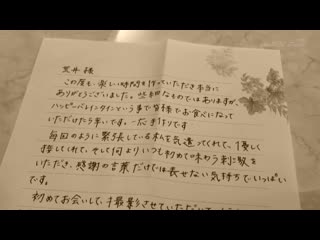 荒井 様
この度も、楽しい時間を作っていただき本当に
ありがとうございました。些細なものではありますが、
ハッピーバレンタインという事で皆様でお食べになって
いただけたら幸いです。一応手作りです
毎回のように緊張している私を気遣ってくれて、優しく
接してくれて、そして何よりいつも初めて味わう刺激を
いただき、感謝の言葉だけでは表せない気持ちでいっぱい
です。
初めてお会いして、撮影させていただいて